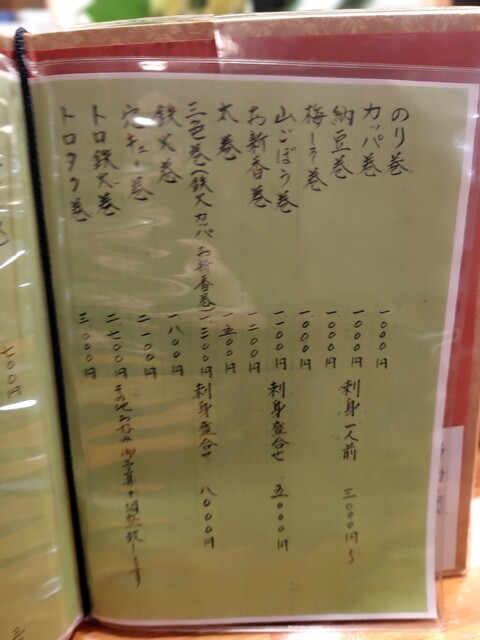 のり巻 一〇〇〇円
カッパ巻 一〇〇〇円
納豆巻 一〇〇〇円 刺身一人前 三〇〇〇円〜
梅しそ巻 一〇〇〇円
山ごぼう巻 一一〇〇円 刺身盛合せ 五〇〇〇円
お新香巻 一二〇〇円
太巻 一五〇〇円
三色巻(鉄火 カッパ お新香巻) 刺身盛合せ 八〇〇〇円
鉄火巻 一八〇〇円
穴キュー巻 二一〇〇円
トロ鉄火巻 二七〇〇円 その他お好み御予算で調整致します
トロタク巻 三〇〇〇円
七〇〇円